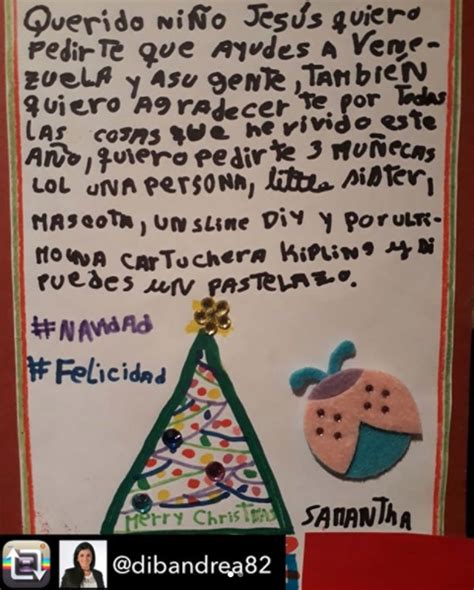 Querido niño Jesús quiero
pedirte que ayudes a Vene-
zuela y asu gente, también
quiero agradecer te por todas
las cosas que he vivido este
año, quiero pedirte 3 muñecas
LOL una persona, little sister,
mascota, un slime DIY y por ulti-
mo una cartuchera Kipling y si
puedes un pastelazo.
#Navidad
#Felicidad
Merry Christmas
Samantha
@dibandrea82